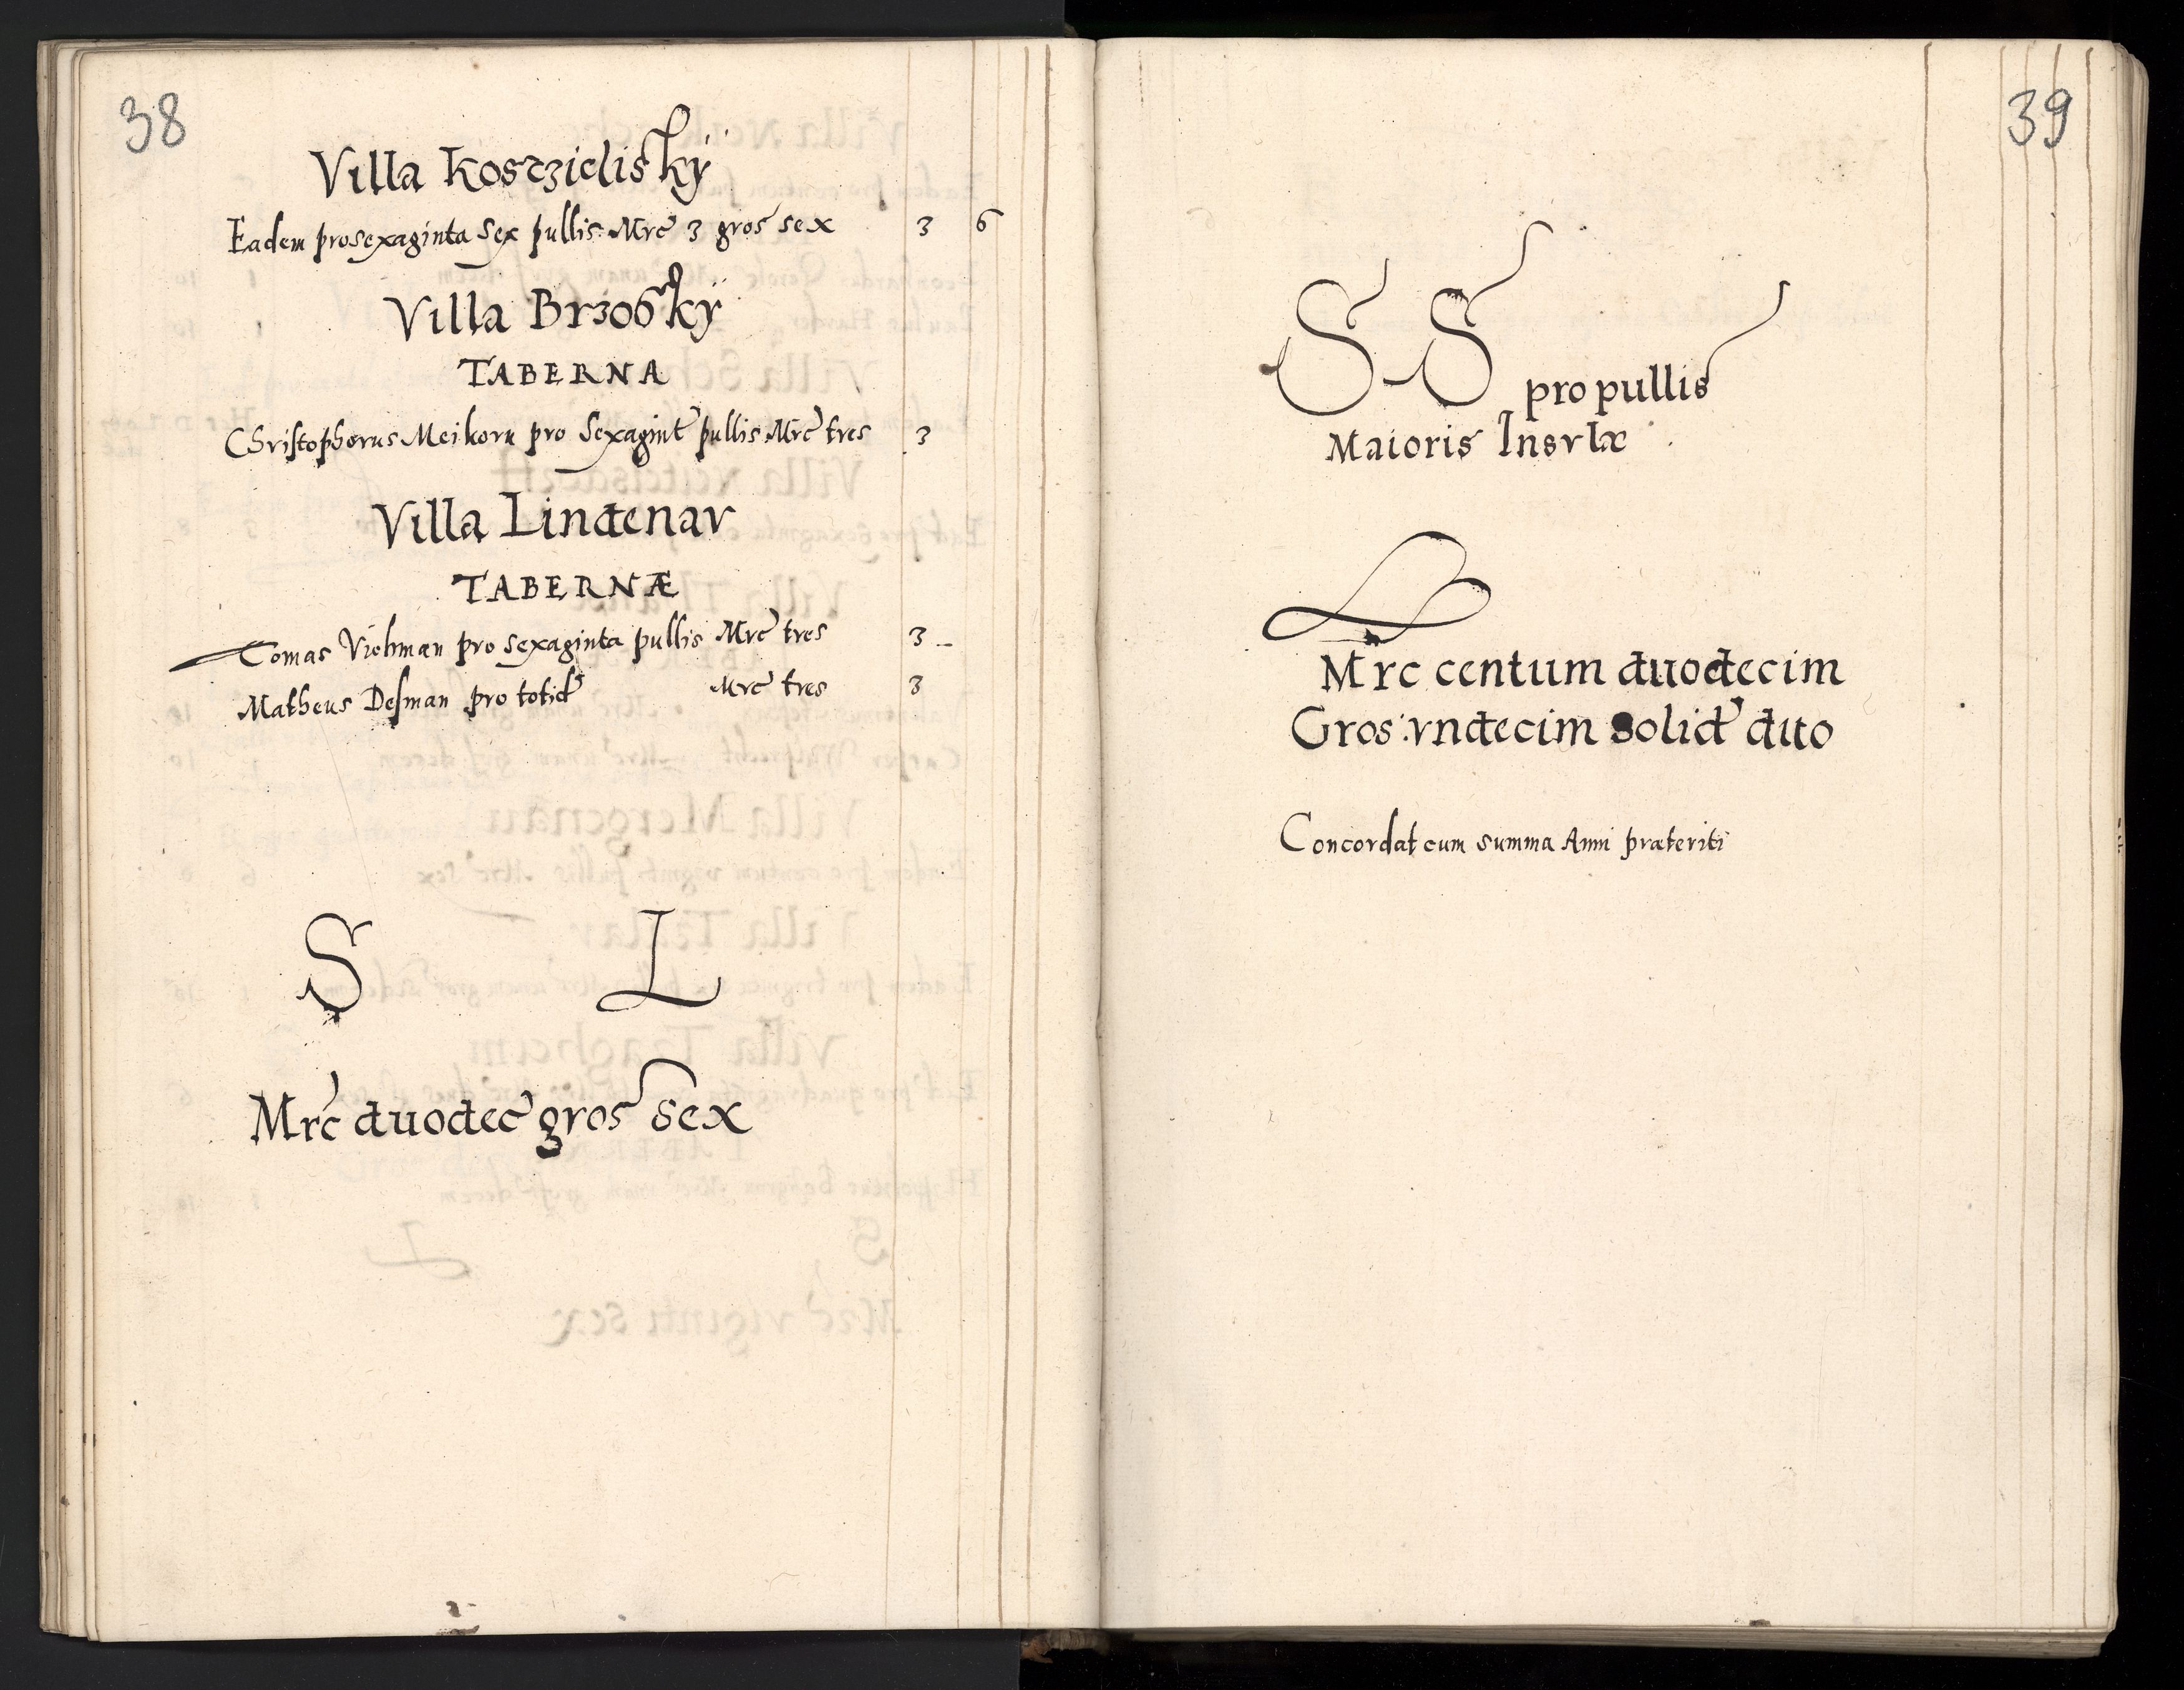 38
Villa Kosczieliskÿ
Eadem pro sexaginta sex pullis Mrc 3 gros sex 3 6
Villa Brzoskÿ
TABERNA
Christophorus Meikorn pro Sexagint pullis Mrc tres 3
Villa Lindenav
TABERNÆ
Tomas Viohman pro sexaginta pullis Mrc tres 3
Matheus Desman pro totid Mrc tres 3
S L
Mrc duodec gros sex
39
S S pro pullis
Maioris Insvlæ
Mrc centum duodecim
Gros: vndecim Solid duo
Concordat cum summa Anni præteriti